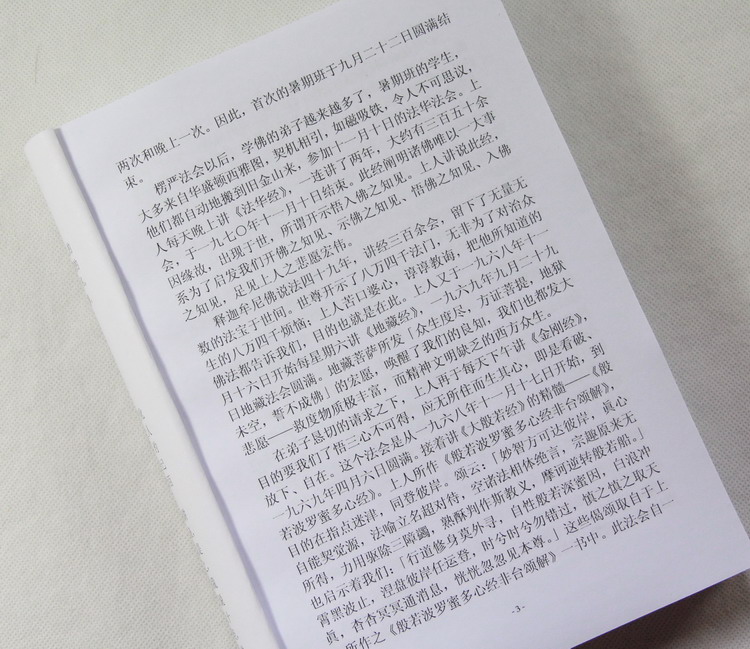 两次和晚上一次。因此，首次的暑期班于九月二十二日圆满结
束。
楞严法会以后，学佛的弟子越来越多了，暑期班的学生，
大多来自华盛顿西雅图，契机相引，如磁吸铁，令人不可思议，
他们都自动地搬到旧金山来，参加十一月十日的法华法会。上
人每天晚上讲《法华经》，一连讲了两年，大约有三百五十余
会，于一九七〇年十一月十日结束。此经阐明诸佛唯以一大事
因缘故，出现于世，所谓开示悟入佛之知见。上人讲说此经，
系为了启发我们开佛之知见、示佛之知见、悟佛之知见、入佛
之知见，足见上人之悲愿宏伟。
释迦牟尼佛说法四十九年，讲经三百余会，留下了无量无
数的法宝于世间。世尊开示了八万四千法门，无非为了对治众
生的八万四千烦恼；上人苦口婆心，谆谆教诲，把他所知道的
佛法都告诉我们，目的也就是在此。上人又于一九六八年十一
月十六日开始每星期六讲《地藏经》，一九六九年九月二十九
日地藏法会圆满。地藏菩萨所发「众生度尽，方证菩提，地狱
未空，誓不成佛」的宏愿，唤醒了我们的良知，我们也都发大
悲愿——救度物质极丰富，而精神文明缺乏的西方众生。
在弟子恳切的请求之下，上人再于每天下午讲《金刚经》，
目的要我们了悟三心不可得，应无所住而生其心，即是看破、
放下、自在。这个法会是从一九六八年十一月十七日开始，到
一九六九年四月六日圆满。接着讲《大般若经》的精髓——《般
若波罗蜜多心经》。上人所作《般若波罗蜜多心经非台颂解》，
目的在指点迷津，同登彼岸。颂云：「妙智方可达彼岸，真心
自能契觉源，法喻立名超对待，空诸法相体绝言，宗趣原来无
所得，力用驱除三障蠲，熟酥判作斯教义，摩诃逆转般若船。」
也启示着我们：「行道修身莫外寻，自性般若深密因，白浪冲
霄黑波止，涅盘彼岸任运登，时兮时兮勿错过，慎之慎之取天
真，杳杳冥冥通消息，恍恍忽忽见本尊。」这些偈颂取自于上
所作之《般若波罗蜜多心经非台颂解》一书中。此法会自一
-3-